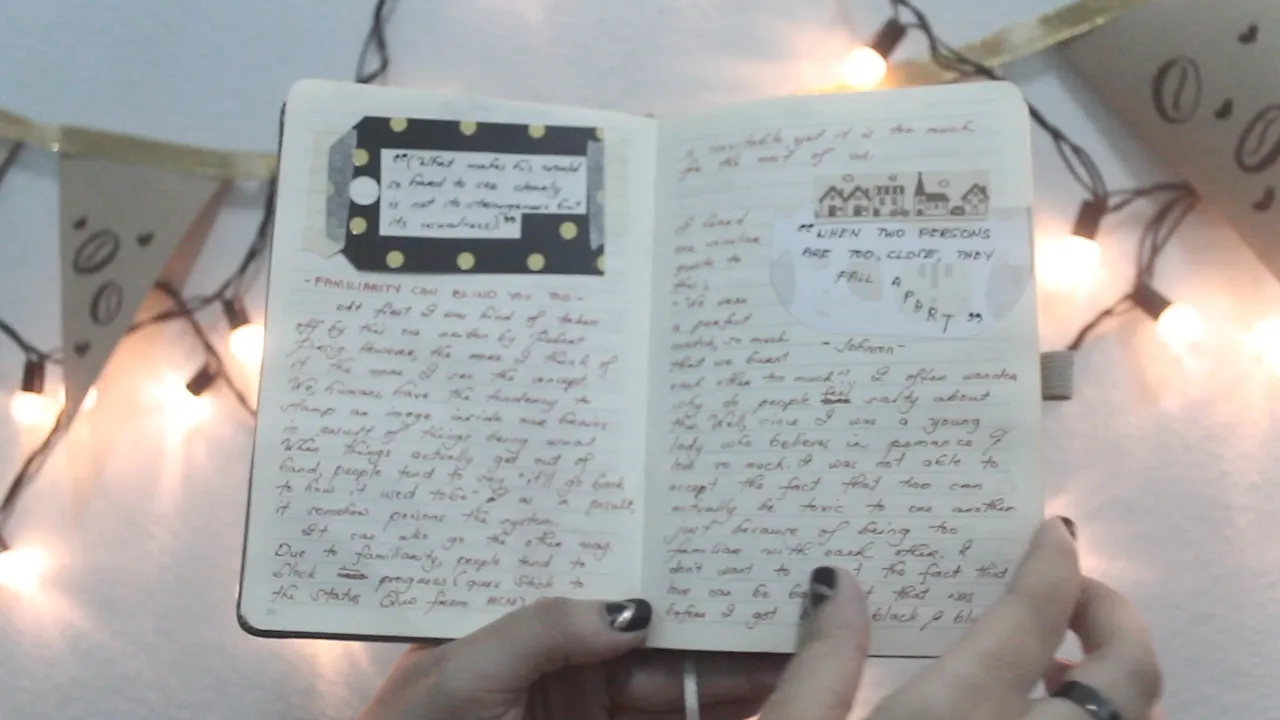 "(What makes his world
so hard to see clearly
is not its strangeness but
its usualness)"
- FAMILIARITY CAN BLIND YOU TOO -
At first I was kind of taken
off by this one written by Robert
Pirsig. However, the more I think of
it the more I see the concept.
We, humans have the tendency to
stamp an image inside our brains
in result of things being usual
When things actually get out of
hand, people tend to say "it'll go back
to how it used to be" & as a result,
it somehow poisons the system.
It can also go the other way.
Due to familiarity, people tend to
block progress (ques stick to
the status Quo from
is inevitable yet it is too much
for the most of us.
"WHEN TWO PERSONS
ARE TOO, CLOSE, THEY
FALL APART"
- Johnson -
I loved
one similar
quote to
this,
"We were
a perfect
match, so much
that we burnt
each other too much". I often wonder
why do people salty about
the Well, since I was a young
lady who believes in romance &
so much. It was not able to
accept the fact that too can
actually be toxic to one another
just because of being too
familiar with each other. I
don't want to the fact that
love can be that was
before I got black &